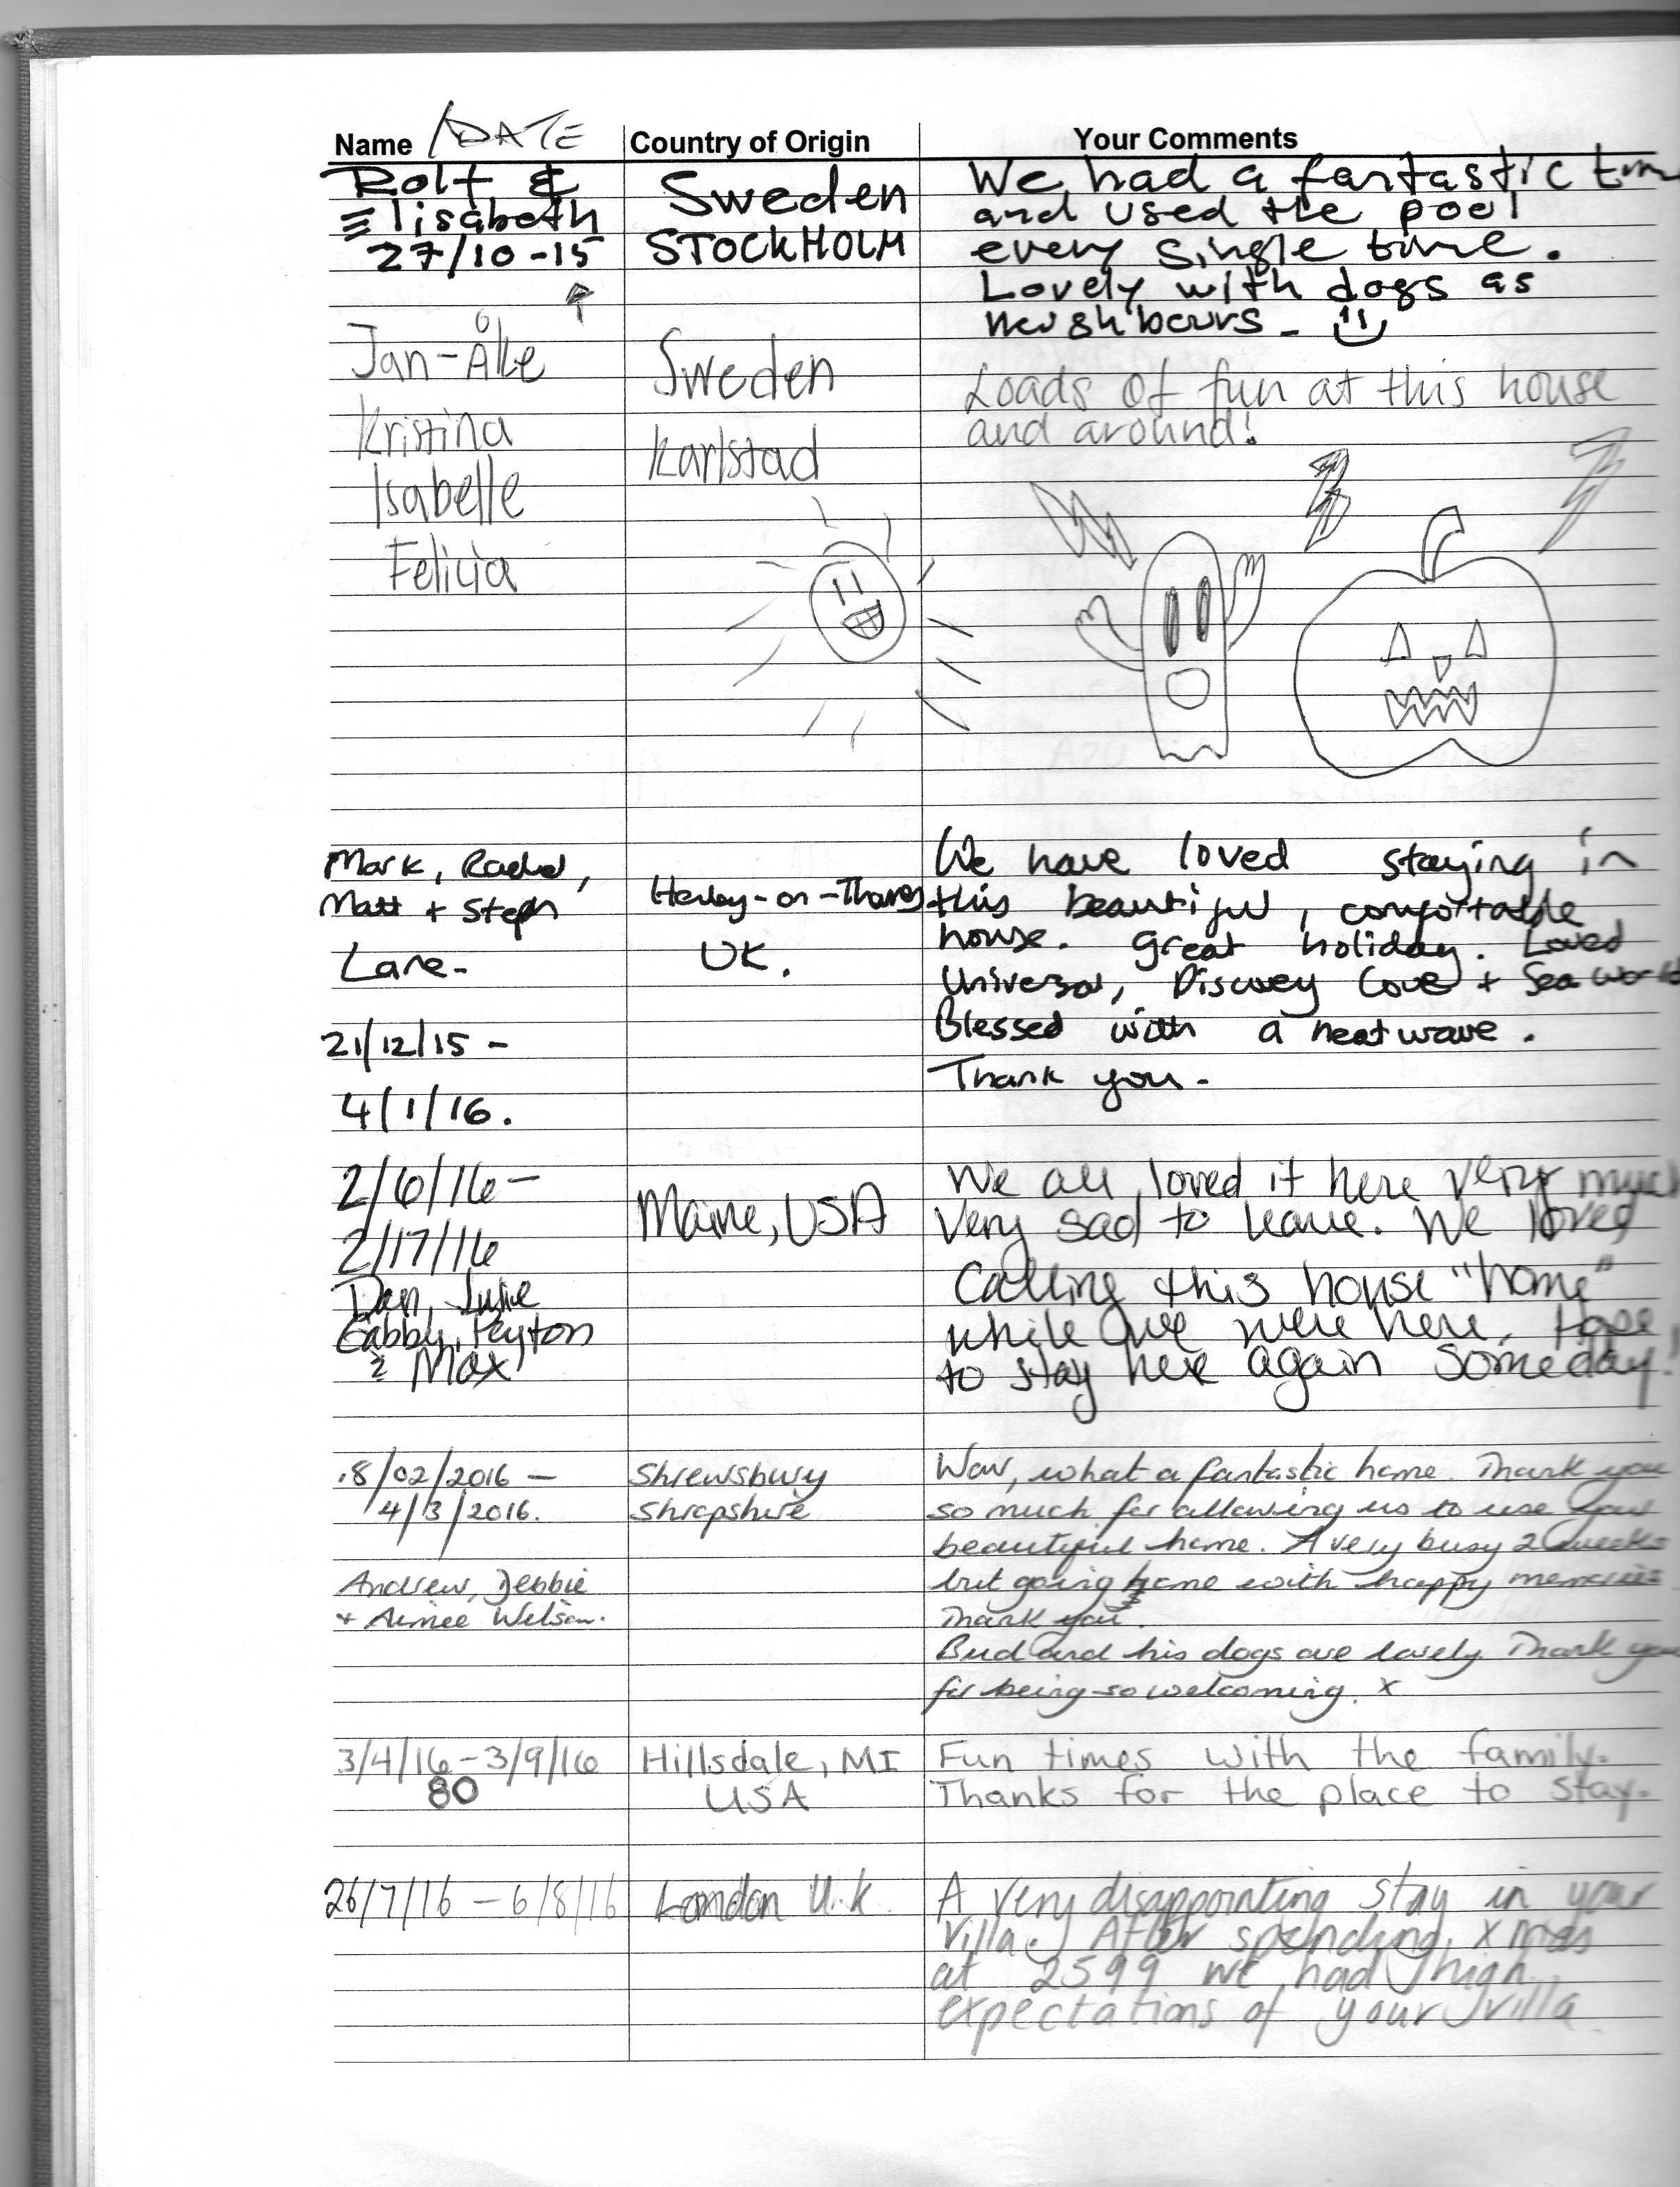 Name /DATE Country of Origin Your Comments
Rolf & Sweden We had a fantastic time
Elisabeth STOCKHOLM and used the pool
27/10-15 every single time.
Lovely with dogs as
neighbours -
Jan-Åke Sweden Loads of fun at this house
Kristina Karlstad and around!
Isabelle
Felicia
Mark, Rachel, Henley-on-Thames We have loved staying in
Matt + Steph UK. this beautiful, comfortable
Lane- house. Great holiday. Loved
Universal, Discovey Cove + Sea world
21/12/15 - Blessed with a heatwave.
4/1/16. Thank you-
2/6/16- Maine, USA We all loved it here very much
2/17/16 Very sad to leave. We loved
Dan, Julie Calling this house "home"
Gabby, Peyton while we were here. Hope
& Max to stay here again someday!
18/02/2016 - Shrewsbury Wow, what a fantastic home. Thank you
4/3/2016. Shropshire so much for allowing us to use your
beautiful home. A very busy 2 weeks
Andrew, Debbie but going home with happy memories
+ Aimee Wilson. Thank you.
Bud and his dogs are lovely. Thank you
for being so welcoming. x
3/4/16-3/9/16 Hillsdale, MI Fun times with the family.
80 USA Thanks for the place to stay.
26/7/16 - 6/8/16 London U.K A very disappointing stay in your
villa. After spending xmas
at 2599 we had high
expectations of your villa